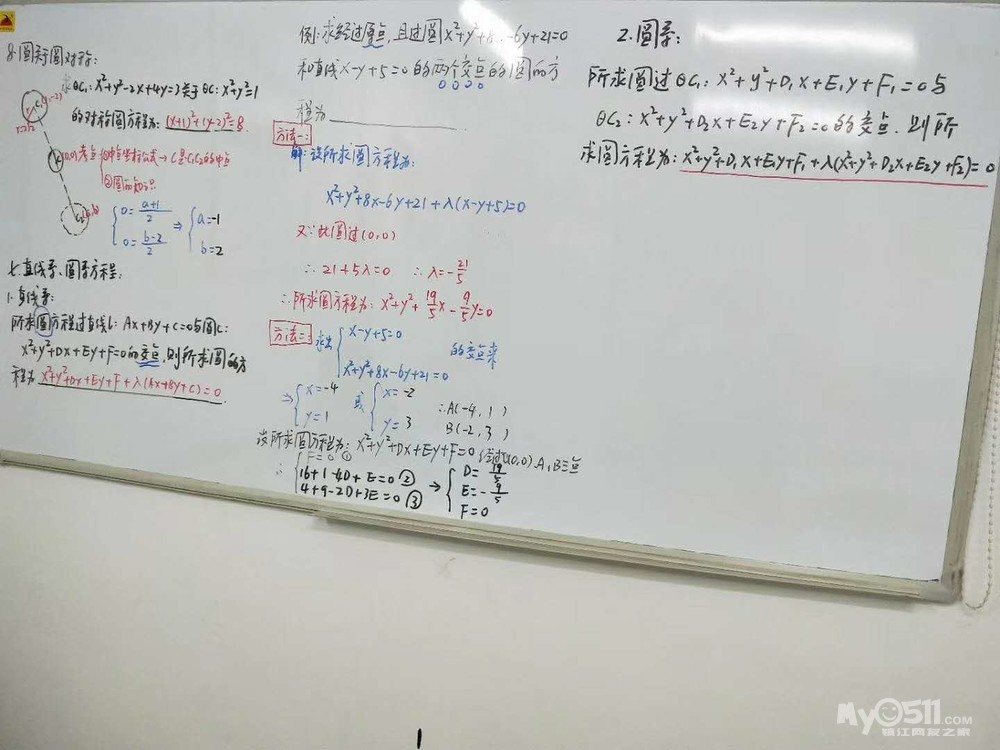 8.圆关于圆对称:
求⊙C₁: x²+y²-2x+4y=3关于⊙C: x²+y²=1
的对称圆方程为: (x+1)²+(y-2)²=8.
(0,0)考点
①中点坐标公式→C是C₁C₂的中点
②圆的知识
{0=(a+1)/2
0=(b-2)/2
⇒ {a=-1
b=2
七.直线系、圆系方程:
1.直线系:
所求圆方程过直线l: Ax+By+C=0与圆C:
x²+y²+Dx+Ey+F=0的交点,则所求圆的方
程为 x²+y²+Dx+Ey+F+λ(Ax+By+C)=0
例:求经过原点,且过圆x²+y²+8 -6y+21=0
和直线x-y+5=0的两个交点的圆的方
程为
方法一:
解:设所求圆方程为:
x²+y²+8x-6y+21+λ(x-y+5)=0
又∵此圆过(0,0)
∴21+5λ=0 ∴λ=-21/5
∴所求圆方程为: x²+y²+19/5x-9/5y=0
方法二:
求出 {x-y+5=0
x²+y²+8x-6y+21=0
的交点来
⇒ {x=-4
y=1
或 {x=-2
y=3
∴A(-4,1)
B(-2,3)
设所求圆方程为: x²+y²+Dx+Ey+F=0经过(0,0).A,B三点
∴ {F=0 ①
16+1-4D+E=0 ②
4+9-2D+3E=0 ③
→ {D=19/5
E=-9/5
F=0
2.圆系:
所求圆过⊙C₁: x²+y²+D₁x+E₁y+F₁=0与
⊙C₂: x²+y²+D₂x+E₂y+F₂=0的交点.则所
求圆方程为: x²+y²+D₁x+E₁y+F₁+λ(x²+y²+D₂x+E₂y+F₂)=0
My0511.COM
镇江网友之家